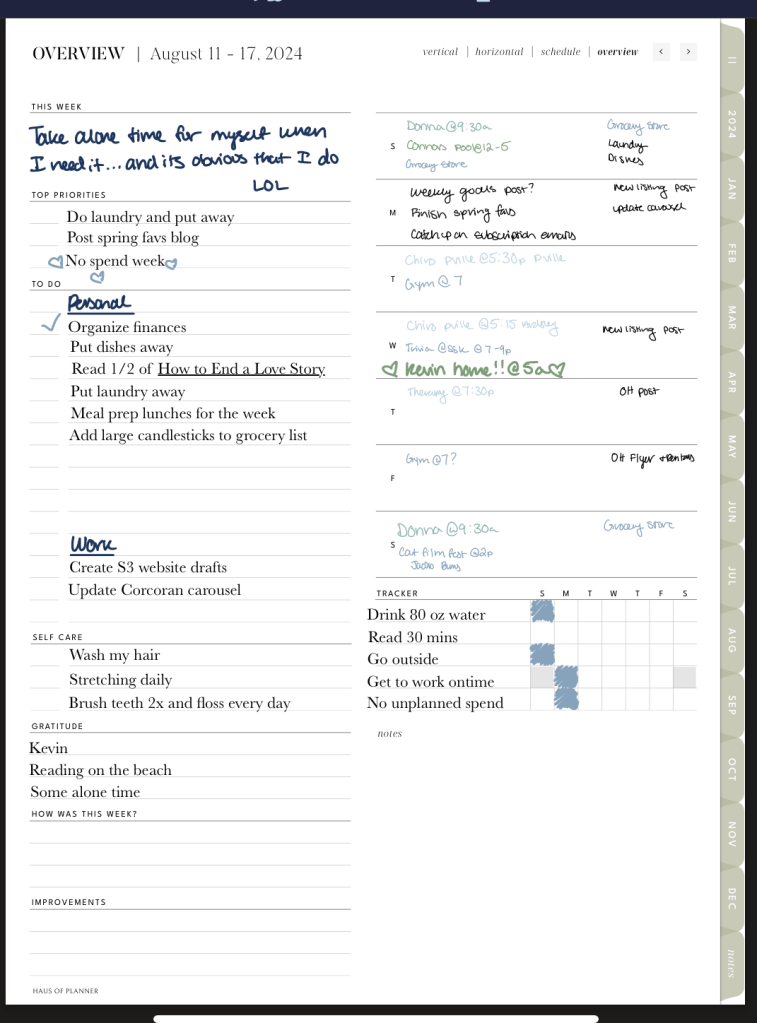 OVERVIEW | August 11 - 17, 2024
vertical | horizontal | schedule | overview < >
THIS WEEK
Take alone time for myself when
I need it...and its obvious that I do
LOL
TOP PRIORITIES
Do laundry and put away
Post spring favs blog
No spend week
TO DO
Personal
Organize finances
Put dishes away
Read 1/2 of How to End a Love Story
Put laundry away
Meal prep lunches for the week
Add large candlesticks to grocery list
Work
Create S3 website drafts
Update Corcoran carousel
SELF CARE
Wash my hair
Stretching daily
Brush teeth 2x and floss every day
GRATITUDE
Kevin
Reading on the beach
Some alone time
HOW WAS THIS WEEK?
IMPROVEMENTS
HAUS OF PLANNER
S
Donna@9:30a
Connors pool@12-5
Grocery store
Grocery store
Laundry
Dishes
M
Weekly goals post?
Finish spring favs
Catch up on subscription emails
New listing post
update carousel
T
Chiro pville @5:30p pville
Gym @ 7
W
Chiro pville @5:15
Trivia @SSK @ 7-9p
Kevin home!!@5a
New listing post
T
Therapy @7:30p
OH post
F
Gym@7?
OH Flyer
S
Donna@9:30a
Cat Film Fest @2p
Grocery store
TRACKER S M T W T F S
Drink 80 oz water
Read 30 mins
Go outside
Get to work ontime
No unplanned spend
notes
2024
JAN
FEB
MAR
APR
MAY
JUN
JUL
AUG
SEP
OCT
NOV
DEC
notes